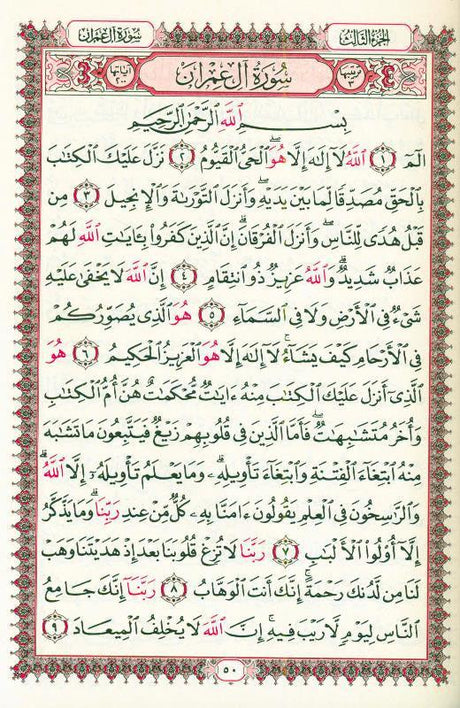 سورة آل عمران
الجزء الثالث
ترتيبها ٣
سورة آل عمران
آياتها ٢٠٠
بِسْمِ اللَّهِ الرَّحْمَٰنِ الرَّحِيمِ
الٓمٓ ١ اللَّهُ لَآ إِلَٰهَ إِلَّا هُوَ ۖ الْحَىُّ الْقَيُّومُ ٢ نَزَّلَ عَلَيْكَ الْكِتَٰبَ
بِالْحَقِّ مُصَدِّقًا لِّمَا بَيْنَ يَدَيْهِ ۖ وَأَنزَلَ التَّوْرَىٰةَ وَالْإِنجِيلَ ٣ مِن
قَبْلُ هُدًى لِّلنَّاسِ ۖ وَأَنزَلَ الْفُرْقَانَ ۗ إِنَّ الَّذِينَ كَفَرُوا۟ بِـَٔايَٰتِ اللَّهِ لَهُمْ
عَذَابٌ شَدِيدٌ ۗ وَاللَّهُ عَزِيزٌ ذُو انتِقَامٍ ٤ إِنَّ اللَّهَ لَا يَخْفَىٰ عَلَيْهِ
شَىْءٌ فِى الْأَرْضِ وَلَا فِى السَّمَآءِ ٥ هُوَ الَّذِى يُصَوِّرُكُمْ
فِى الْأَرْحَامِ كَيْفَ يَشَآءُ ۚ لَآ إِلَٰهَ إِلَّا هُوَ الْعَزِيزُ الْحَكِيمُ ٦ هُوَ
الَّذِىٓ أَنزَلَ عَلَيْكَ الْكِتَٰبَ مِنْهُ ءَايَٰتٌ مُّحْكَمَٰتٌ هُنَّ أُمُّ الْكِتَٰبِ
وَأُخَرُ مُتَشَٰبِهَٰتٌ ۖ فَأَمَّا الَّذِينَ فِى قُلُوبِهِمْ زَيْغٌ فَيَتَّبِعُونَ مَا تَشَٰبَهَ
مِنْهُ ابْتِغَآءَ الْفِتْنَةِ وَابْتِغَآءَ تَأْوِيلِهِ ۗ وَمَا يَعْلَمُ تَأْوِيلَهُۥٓ إِلَّا اللَّهُ ۗ
وَالرَّٰسِخُونَ فِى الْعِلْمِ يَقُولُونَ ءَامَنَّا بِهِۦ كُلٌّ مِّنْ عِندِ رَبِّنَا ۗ وَمَا يَذَّكَّرُ
إِلَّآ أُو۟لُوا۟ الْأَلْبَٰبِ ٧ رَبَّنَا لَا تُزِغْ قُلُوبَنَا بَعْدَ إِذْ هَدَيْتَنَا وَهَبْ
لَنَا مِن لَّدُنكَ رَحْمَةً ۚ إِنَّكَ أَنتَ الْوَهَّابُ ٨ رَبَّنَآ إِنَّكَ جَامِعُ
النَّاسِ لِيَوْمٍ لَّا رَيْبَ فِيهِ ۚ إِنَّ اللَّهَ لَا يُخْلِفُ الْمِيعَادَ ٩
٥٠